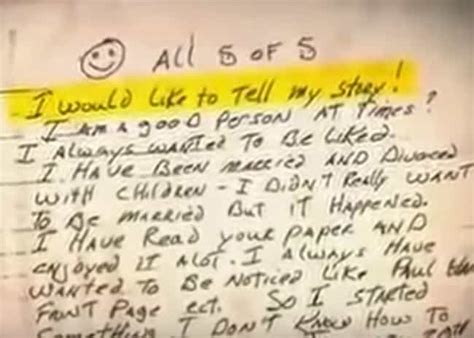 ALL 5 OF 5
I would like to Tell my Story!
I Am A good Person AT Times?
I Always wanted To Be Liked.
I. Have Been married And Divorced
with children - I DIDN'T Really want
To Be married But iT Happened.
I Have Read your paper And
enjoyed IT Alot. I Always Have
wanted To Be Noticed Like Paul
Front Page ect. So I STARTED
Something I DON'T Know How To